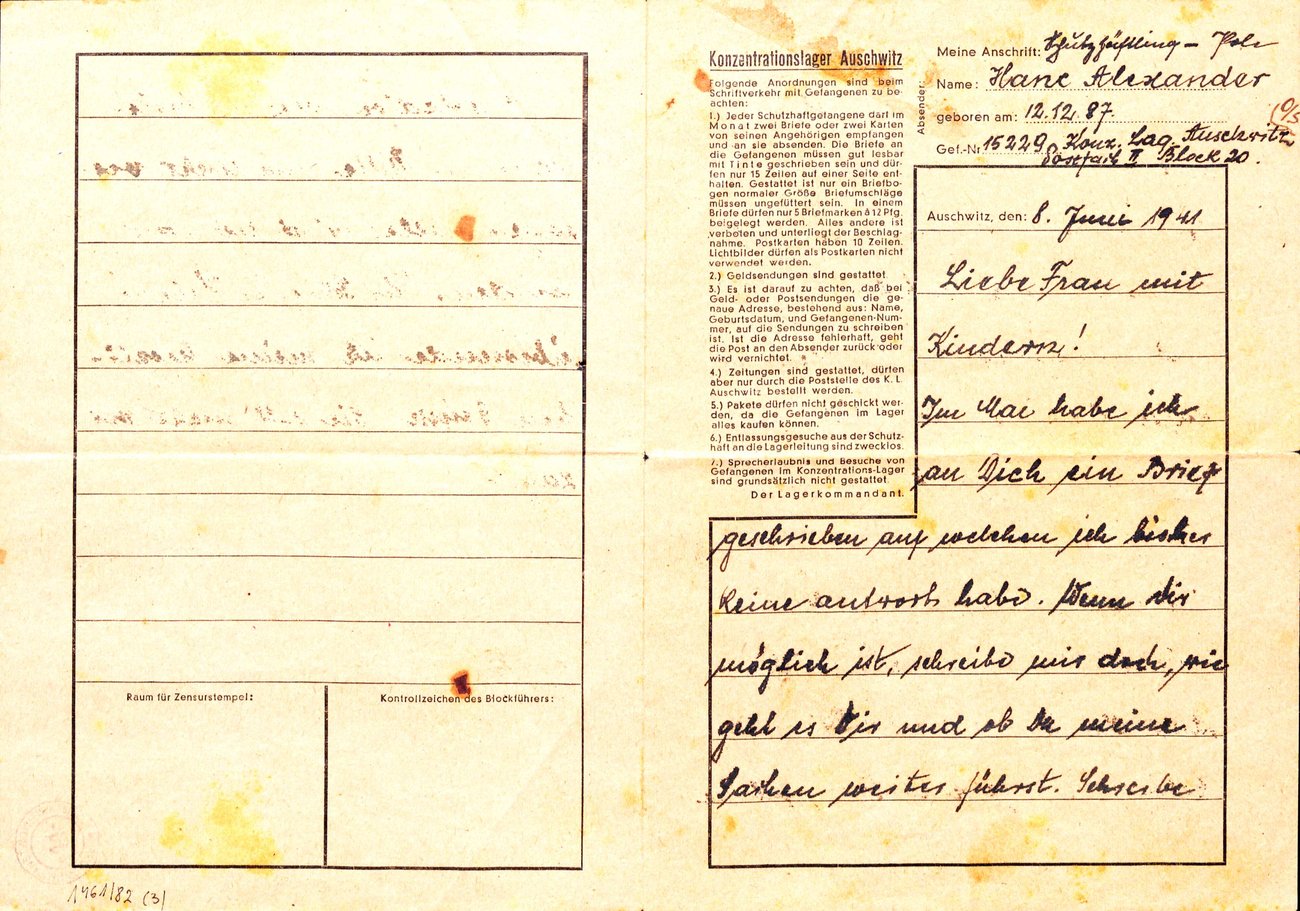 Raum für Zensurstempel:
Kontrollzeichen des Blockführers:
1461/82 (3)
Konzentrationslager Auschwitz
Folgende Anordnungen sind beim
Schriftverkehr mit Gefangenen zu be-
achten:
1.) Jeder Schutzhaftgefangene darf im
Monat zwei Briefe oder zwei Karten
von seinen Angehörigen empfangen
und an sie absenden. Die Briefe an
die Gefangenen müssen gut lesbar
mit Tinte geschrieben sein und dür-
fen nur 15 Zeilen auf einer Seite ent-
halten. Gestattet ist nur ein Briefbo-
gen normaler Größe. Briefumschläge
müssen ungefüttert sein. In einem
Briefe dürfen nur 5 Briefmarken à 12 Pfg.
beigelegt werden. Alles andere ist
verboten und unterliegt der Beschlag-
nahme. Postkarten haben 10 Zeilen.
Lichtbilder dürfen als Postkarten nicht
verwendet werden.
2.) Geldsendungen sind gestattet
3.) Es ist darauf zu achten, daß bei
Geld- oder Postsendungen die ge-
naue Adresse, bestehend aus: Name,
Geburtsdatum, und Gefangenen-Num-
mer, auf die Sendungen zu schreiben
ist. Ist die Adresse fehlerhaft, geht
die Post an den Absender zurück oder
wird vernichtet.
4.) Zeitungen sind gestattet, dürfen
aber nur durch die Poststelle des K. L.
Auschwitz bestellt werden.
5.) Pakete dürfen nicht geschickt wer-
den, da die Gefangenen im Lager
alles kaufen können.
6.) Entlassungsgesuche aus der Schutz-
haft an die Lagerleitung sind zwecklos.
7.) Sprecherlaubnis und Besuche von
Gefangenen im Konzentrations-Lager
sind grundsätzlich nicht gestattet
Der Lagerkommandant.
Absender:
Meine Anschrift: Schutzhäftling – Pole
Name: Hanc Alexander
geboren am: 12.12.87.
Gef.-Nr 15229 Konz. Lag. Auschwitz
Block 20.
Auschwitz, den: 8. Juni 1941
Liebe Frau mit
Kindern!
Im Mai habe ich
an Dich ein Brief
geschrieben auf welchen ich bisher
keine antwort habe. Wenn dir
möglich ist, schreibe mir doch, wie
geht es Dir und ob Du meine
Sachen weiter führst. Schreibe